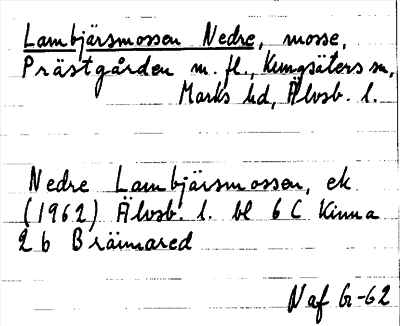 Lambjärsmossen Nedre, mosse,
Prästgården m. fl., Kungsäters sn,
Marks hd, Älvsb. l.
Nedre Lambjärsmossen, ek
(1962) Älvsb. l. bl 6 C Kinna
2 b Bräimared
N af Gr-62